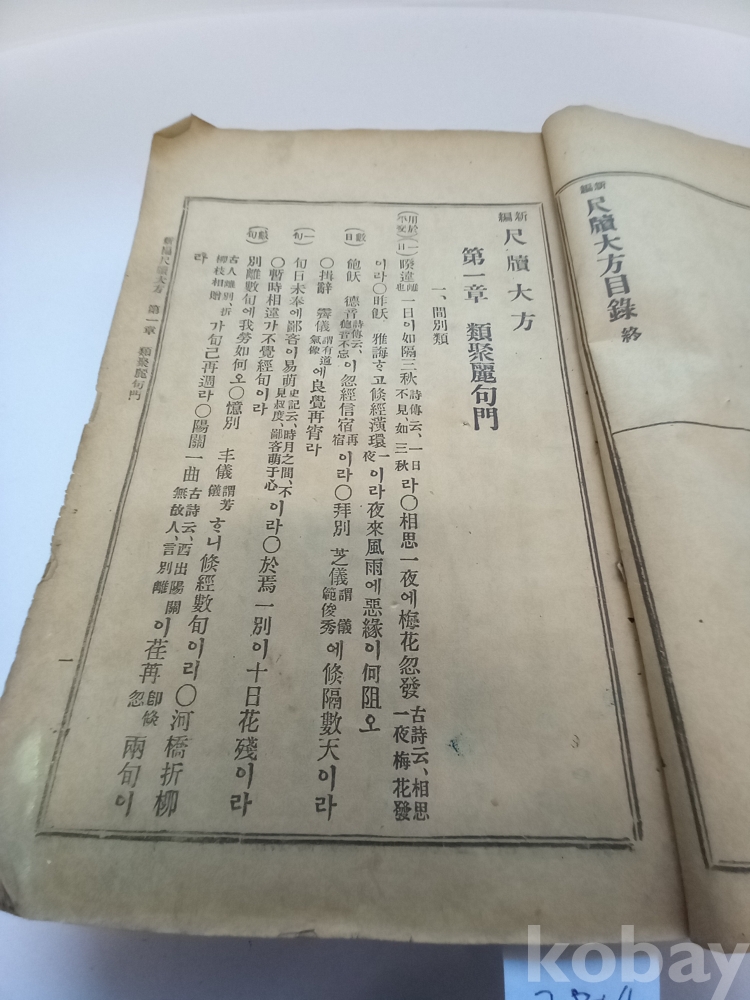 新編 尺牘大方目錄 終
新編 尺牘大方
第一章 類聚麗句門
一、間別類
(用於平交)(一日) 暌違離也 一日이如隔三秋詩傳云、一日不見、如三秋라○相思一夜에梅花忽發古詩云、相思一夜梅花發
이라○昨飫 雅誨ᄒᆞ고倐經潢環一夜이라夜來風雨에惡緣이何阻오
(數日) 飽飫 德音詩傳云、德音不忘이忽經信宿再宿이라○拜別 芝儀謂儀範俊秀에倐隔數天이라
○揖辭 霽儀謂有道氣像에良覺再宵라
(一旬) 旬日未奉에鄙吝이易萌史記云、時月之間、不見叔度、鄙吝萌于心이라○於焉一別이十日花殘이라
○暫時相違가不覺經旬이라
(數旬) 別離數旬에我勞如何오○憶別 丰儀謂芳儀ᄒᆞ니倐經數旬이리○河橋折柳
古人離別、折柳枝相贈가旬己再週라○陽關一曲古詩云、西出陽關無故人、言別離이荏苒卽倐忽兩旬이
라
新編尺牘大方 第一章 類聚麗句門
一
kobay